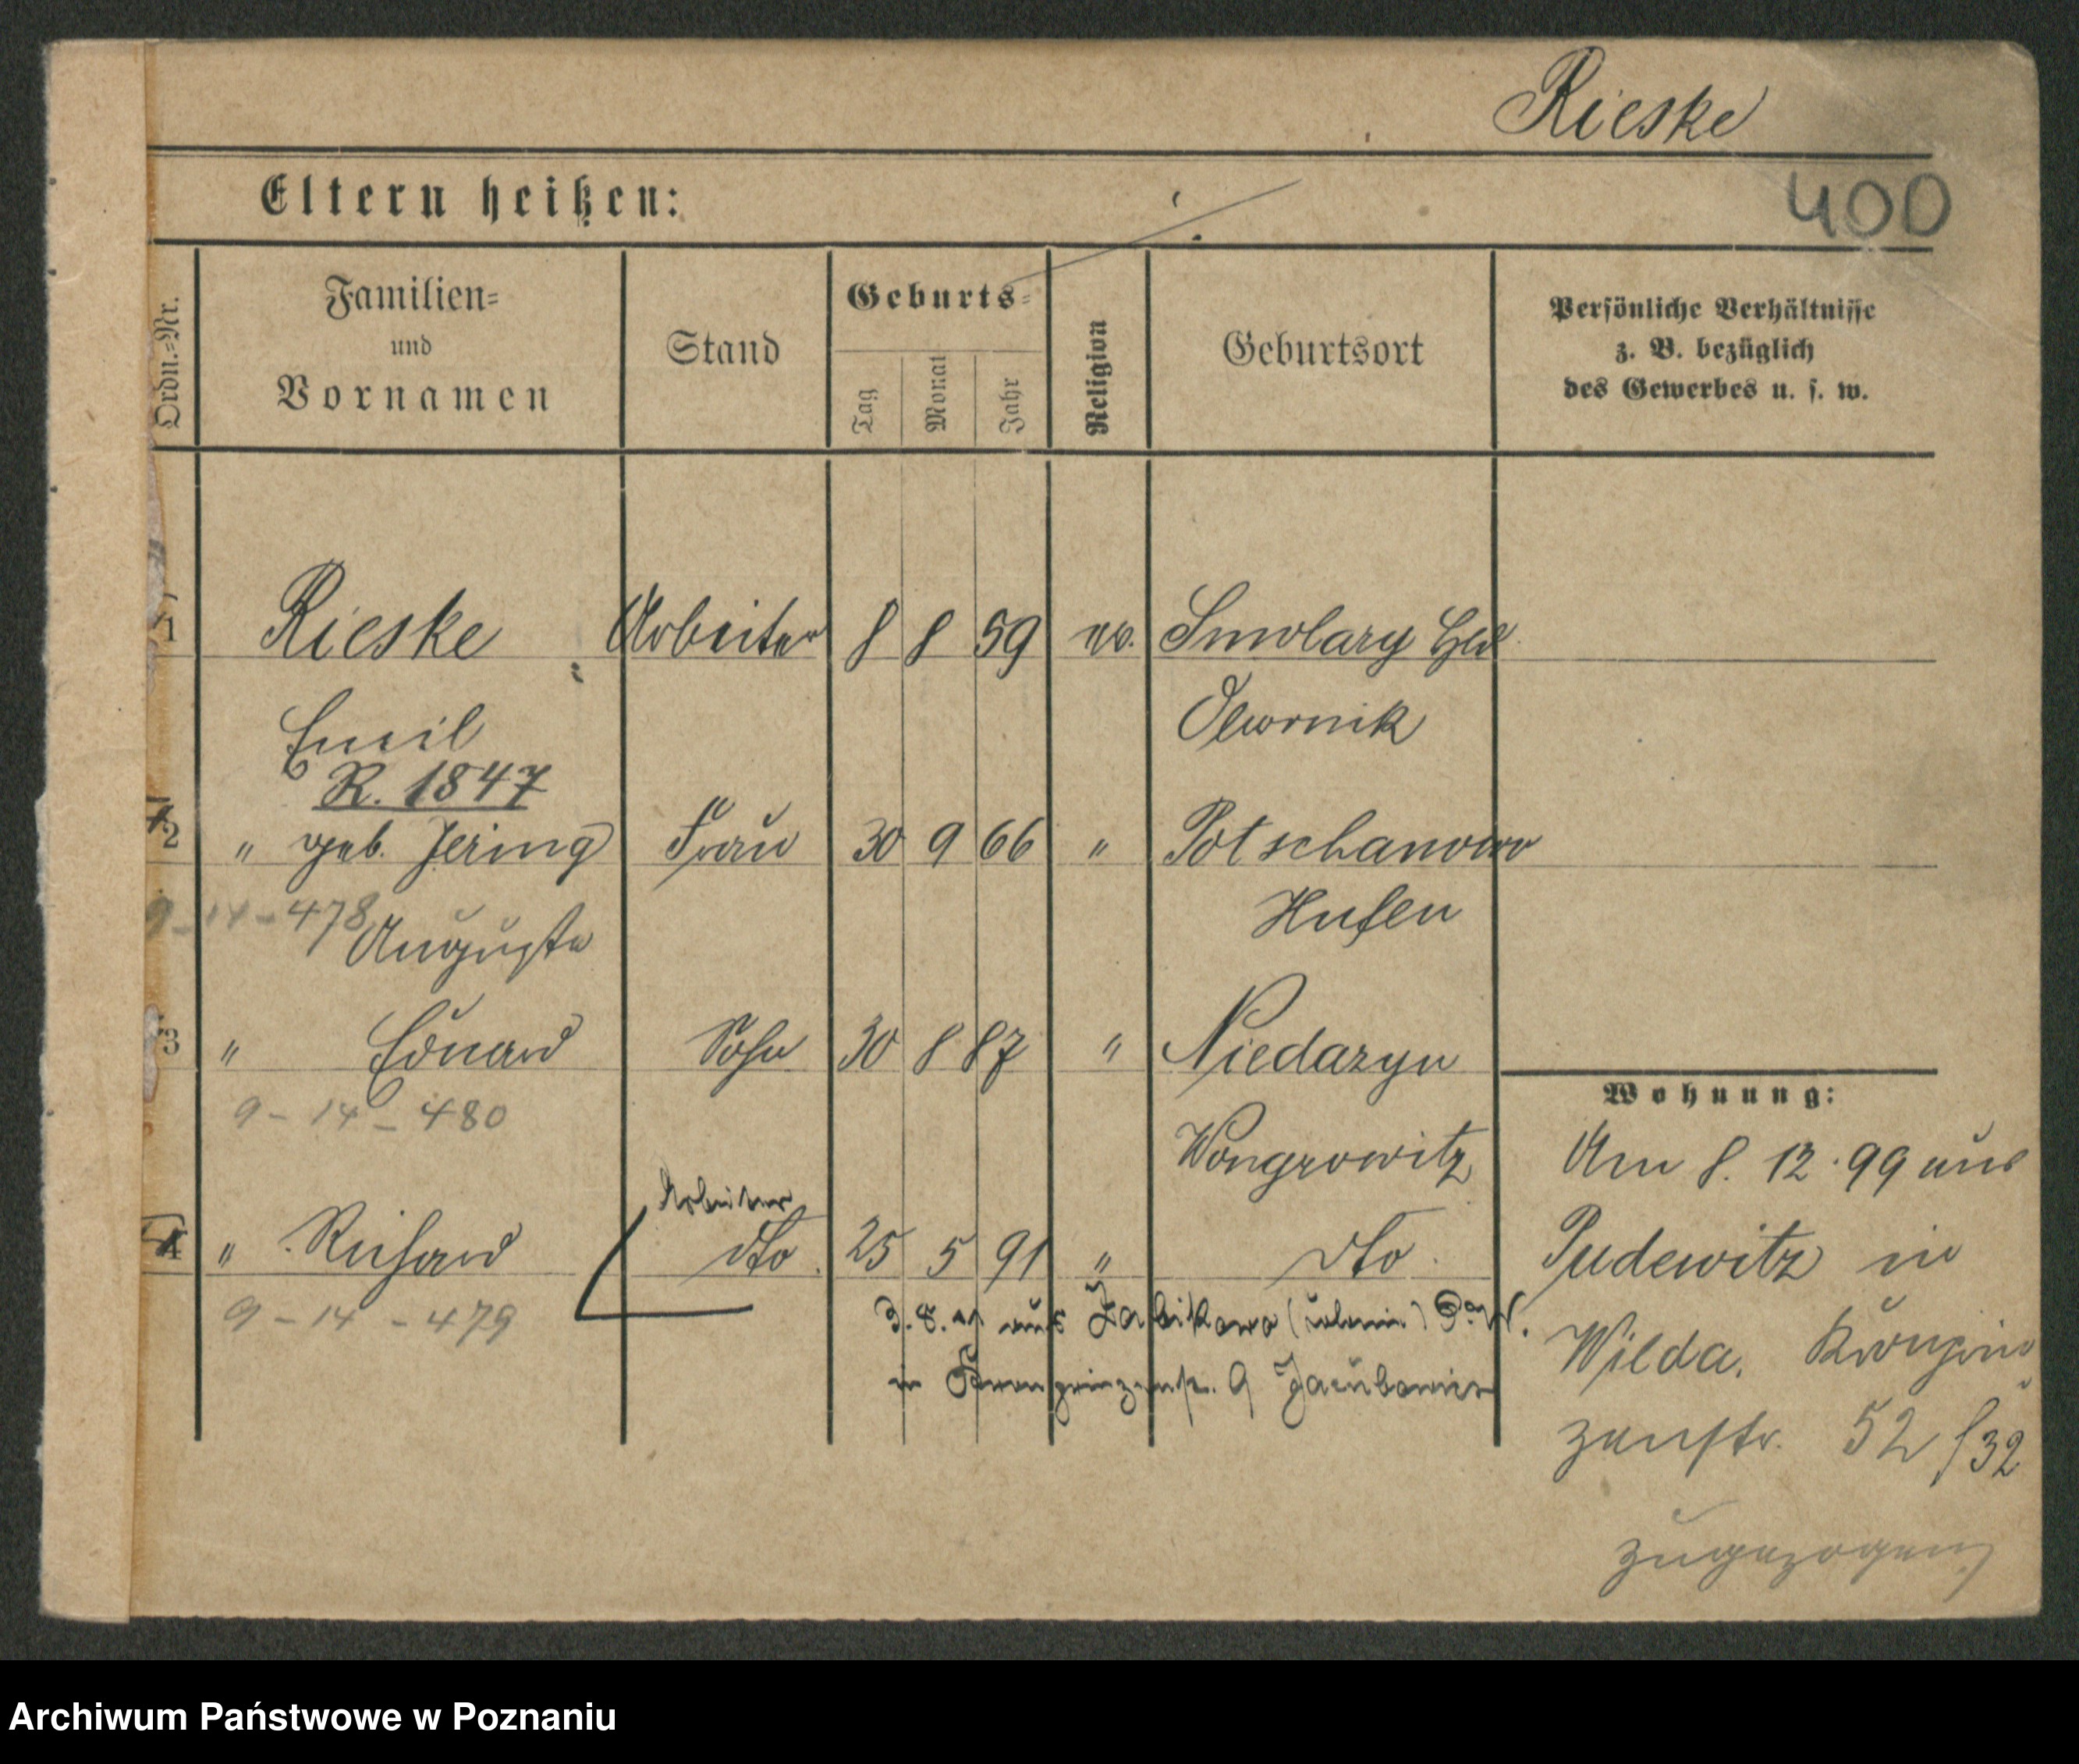 Rieske
400
Eltern heißen:
Ordn.=Nr.
Familien=
und
Vornamen
Stand
Geburts=
Tag
Monat
Jahr
Religion
Geburtsort
Persönliche Verhältnisse
z. B. bezüglich
des Gewerbes u. s. w.
1 Rieske Arbeiter 8 8 59 ev. Smolary
Emil
R. 1847
2 " geb. Jering Frau 30 9 66 " Potschanowo
9-14-478 Auguste Hufen
3 " Eduard Sohn 30 8 87 " Niedazyn
9-14-480 Wongrowitz
Arbeiter
4 " Richard dto. 25 5 91 " dto.
9-14-479
aus Zabikowo
in Kronprinzenstr. 9
Wohnung:
Am 8. 12. 99 aus
Pudewitz in
Wilda. Kronprin
zenstr. 52/32
zugezogen
Archiwum Państwowe w Poznaniu